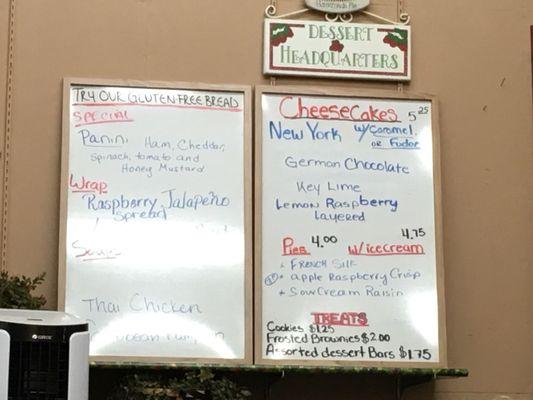 Homemade Pie
DESSERT
HEADQUARTERS
TRY OUR GLUTEN FREE BREAD
SPECIAL
Panini Ham, Cheddar,
Spinach, tomato and
Honey Mustard
Wrap
Raspberry Jalapeño
Spread
Thai Chicken
CHEESECAKES 5.25
NEW YORK W/CARAMEL
OR FUDGE
German Chocolate
Key Lime
Lemon Raspberry
Layered
Pies 4.00 W/icecream 4.75
FRENCH SILK
apple Raspberry Crisp
SOUR CREAM Raisin
TREATS
Cookies $1.25
Frosted Brownies $2.00
Assorted dessert Bars $1.75
GREE